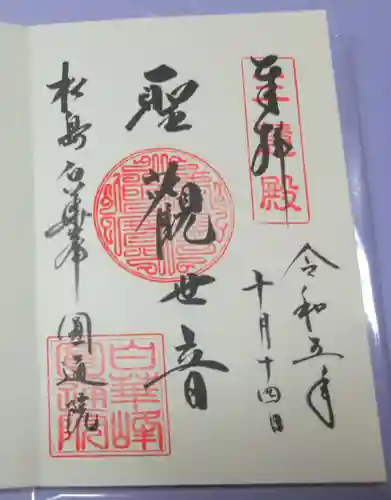 奉拝
三慧殿
令和五年
十月十四日
聖観世音
松島白華峰圓通院
白華峰圓通院